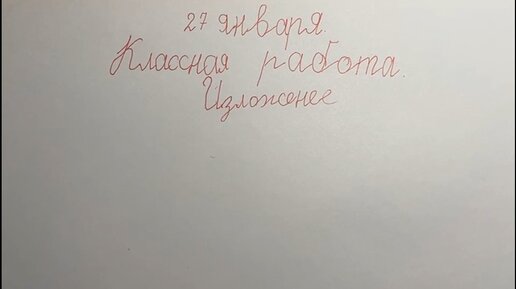 27 января.
Классная работа.
Изложенее